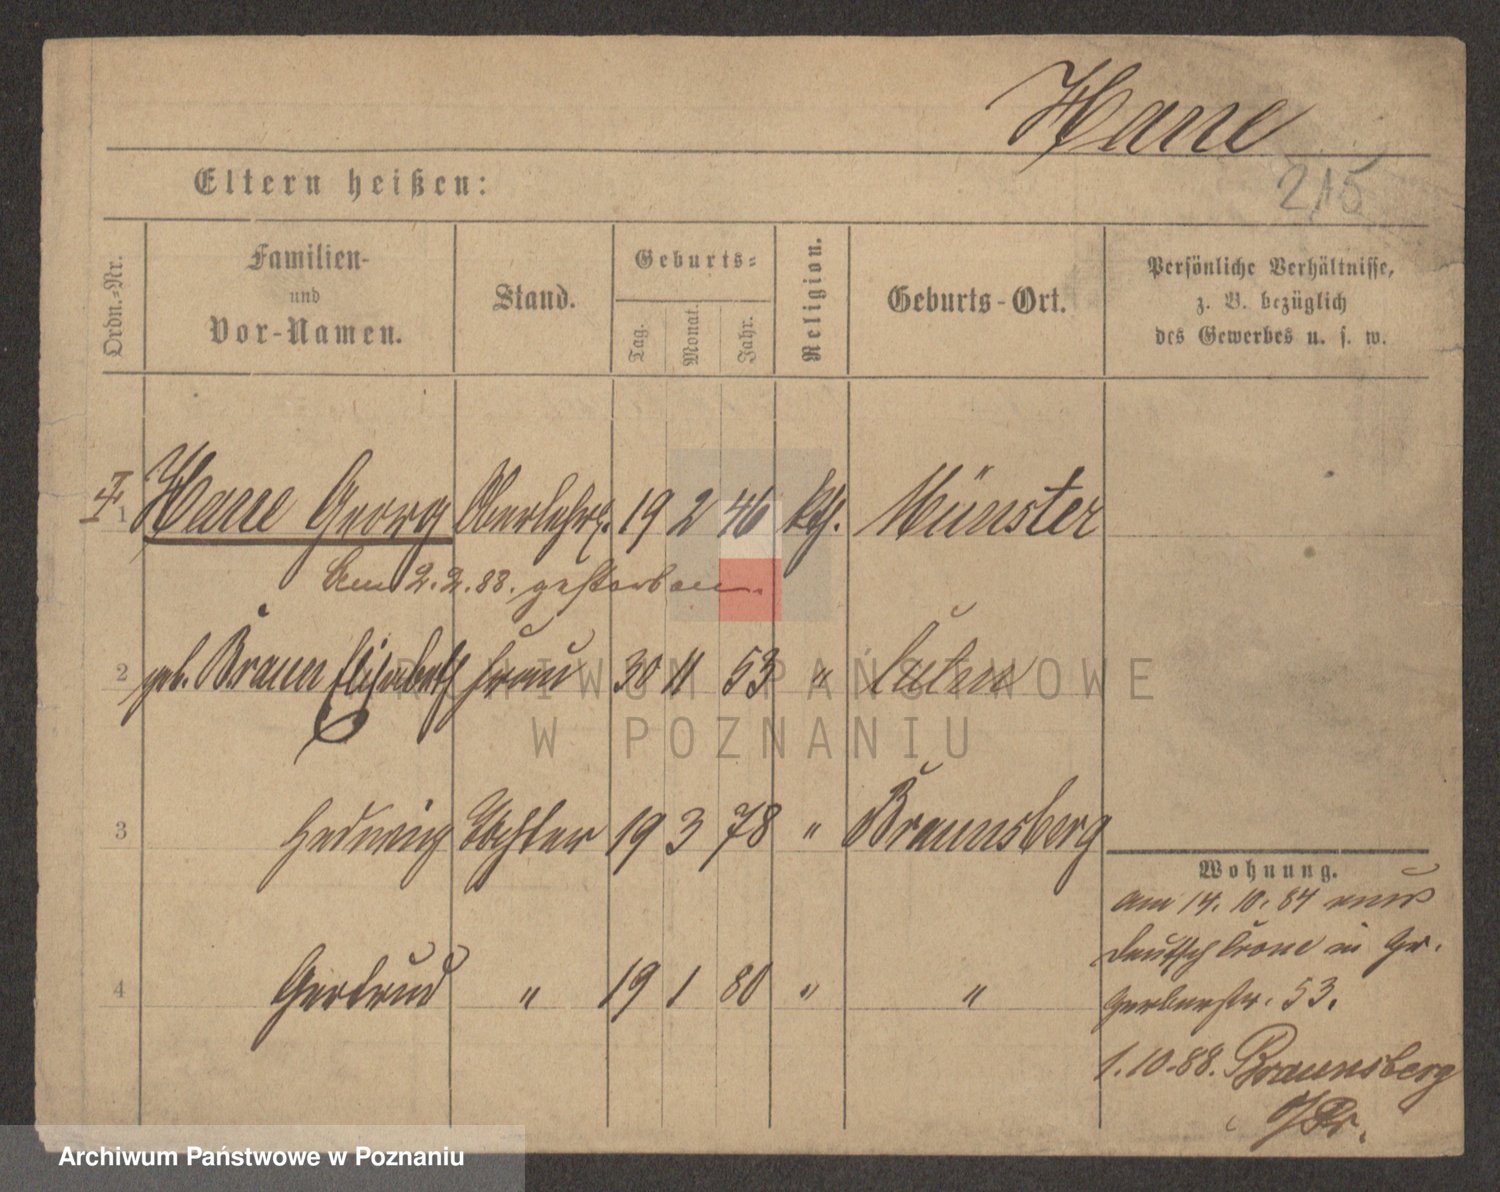 Hane
215
Eltern heißen:
Ordn.-Nr.
Familien-
und
Vor-Namen.
Stand.
Geburts-
Tag.
Monat.
Jahr.
Religion.
Geburts-Ort.
Persönliche Verhältnisse,
z. B. bezüglich
des Gewerbes u. s. w.
1 Hane Georg Oberlehr. 19 2 46 kth. Münster
Am 2.2.88. gestorben.
2 geb. Braun Elisabeth Frau 30 11 53 "
3 Hedwig Tochter 19 3 78 " Braunsberg
4 Gertrud " 19 1 80 " "
Wohnung.
am 14. 10. 84 aus
Deutsch Crone in Gr.
Gerberstr. 53.
1.10.88. Braunsberg
ARCHIWUM PAŃSTWOWE
W POZNANIU
Archiwum Państwowe w Poznaniu